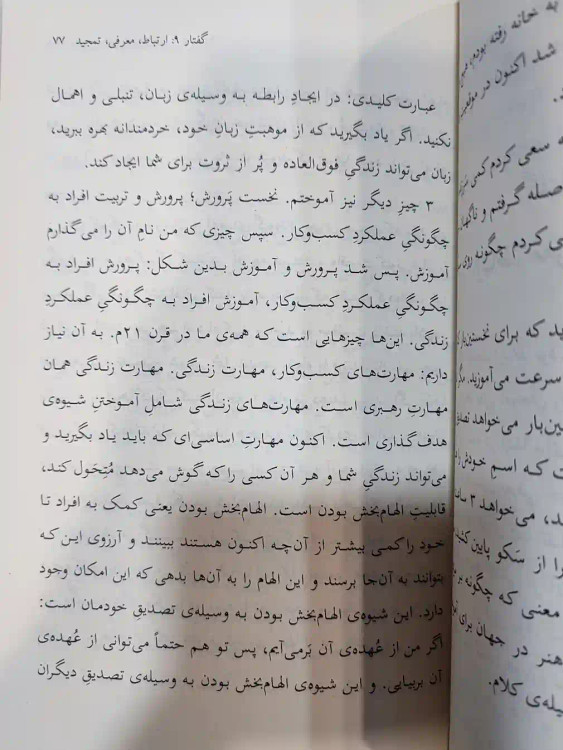 گفتار ۹: ارتباط، معرفی، تمجید ۷۷
عبارت کلیدی: در ایجادِ رابطه به وسیله‌ی زبان، تنبلی و اهمال
نکنید. اگر یاد بگیرید که از موهبتِ زبانِ خود، خردمندانه بهره ببرید،
زبان می‌تواند زندگیِ فوق‌العاده و پُر از ثروت برای شما ایجاد کند.
۳ چیزِ دیگر نیز آموختم. نخست پَرورش؛ پرورش و تربیت افراد به
چگونگیِ عملکردِ کسب‌وکار. سپس چیزی که من نامِ آن را می‌گذارم
آموزش. پس شد پرورش و آموزش بدین شکل: پرورش افراد به
چگونگیِ عملکردِ کسب‌وکار، آموزش افراد به چگونگیِ عملکردِ
زندگی. این‌ها چیزهایی است که همه‌ی ما در قرن ۲۱م. به آن نیاز
داریم: مهارت‌های کسب‌وکار، مهارت زندگی. مهارت زندگی همان
مهارتِ رهبری است. مهارت‌های زندگی شاملِ آموختنِ شیوه‌ی
هدف‌گذاری است. اکنون مهارتِ اساسی‌ای که باید یاد بگیرید و
می‌تواند زندگیِ شما و هر آن کسی را که گوش می‌دهد مُتِحَول کند،
قابلیتِ الهام‌بخش بودن است. الهام‌بخش بودن یعنی کمک به افراد تا
خود را کمی بیشتر از آن‌چه اکنون هستند ببینند و آرزوی این که
بتوانند به آن‌جا برسند و این الهام را به آن‌ها بدهی که این امکان وجود
دارد. این شیوه‌ی الهام‌بخش بودن به وسیله‌ی تصدیقِ خودمان است:
اگر من از عُهده‌ی آن بَرمی‌آیم، پس تو هم حتماً می‌توانی از عُهده‌ی
آن بربیایی. و این شیوه‌ی الهام‌بخش بودن به وسیله‌ی تصدیقِ دیگران
به خانه رفته بودم،
شد اکنون در
سعی کردم کمی
گرفتم و
کردم چگونه روی
که برای نخستین‌بار
سرعت می‌آموزید.
می‌خواهد
که اسمِ خودش را
می‌خواهد ۳
را از سَکو پایین
معنی که چگونه
هنر در جهان برای
کلام.